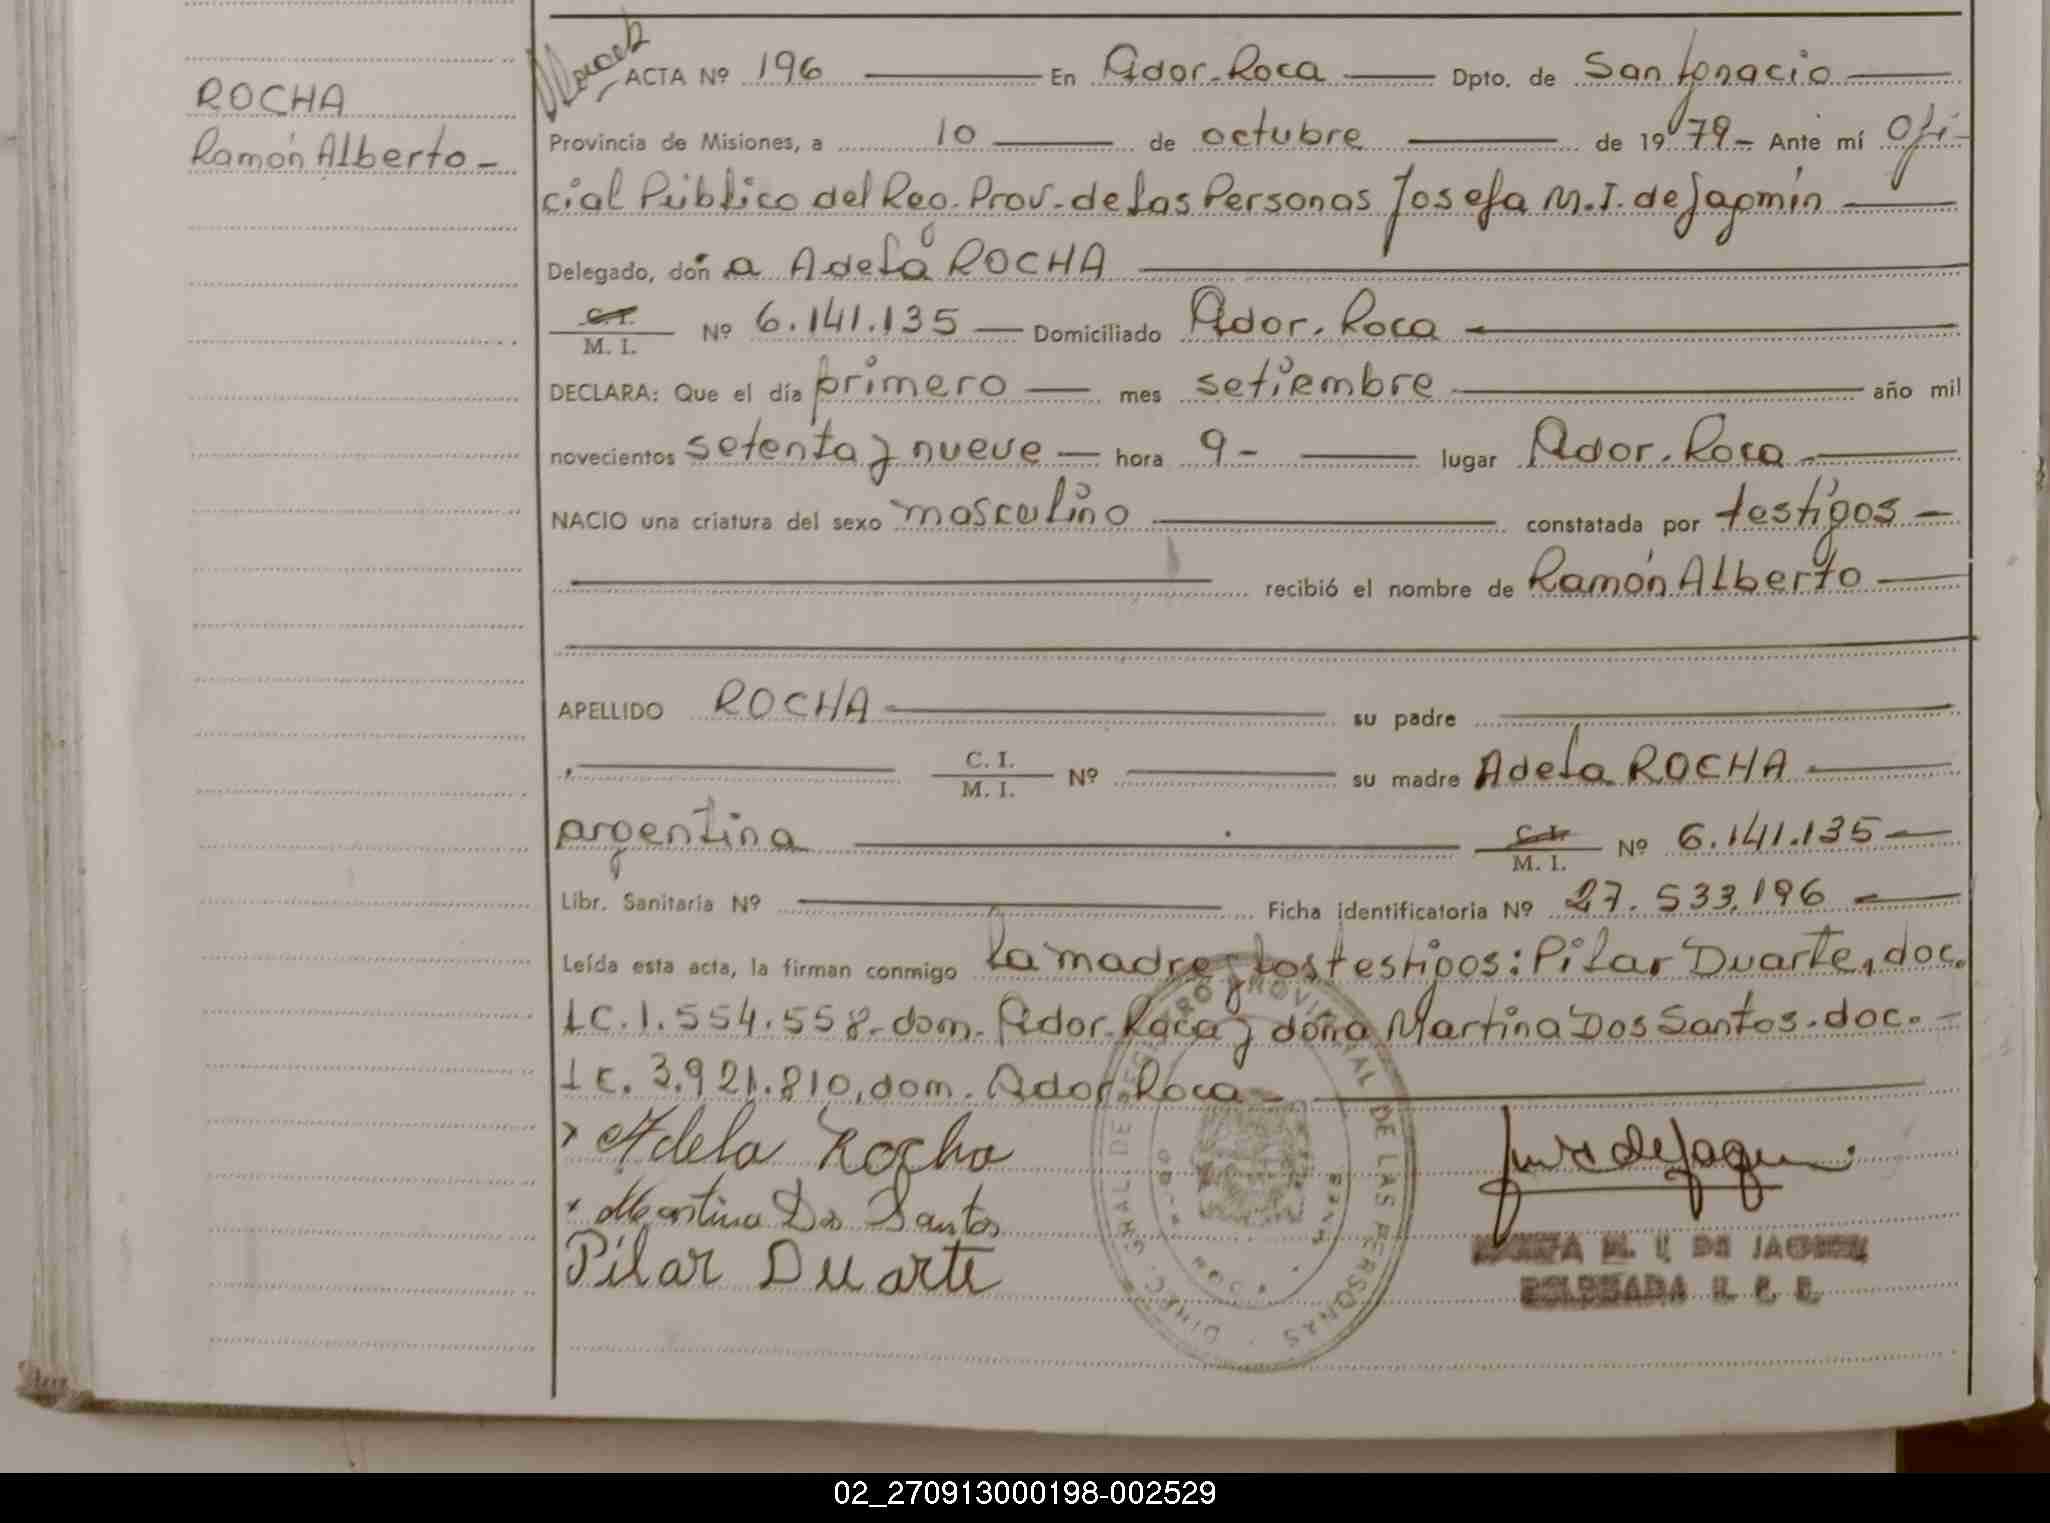 ROCHA
Ramón Alberto -
ACTA Nº 196 En Gdor. Roca Dpto. de San Ignacio
Provincia de Misiones, a 10 de octubre de 1979 - Ante mí Ofi-
cial Público del Reg. Prov. de las Personas Josefa M. I. de Jaqmin
Delegado, don a Adela ROCHA
C. I.
M. I. Nº 6.141.135 Domiciliado Gdor. Roca
DECLARA: Que el día primero mes setiembre año mil
novecientos setenta y nueve hora 9 - lugar Gdor. Roca
NACIO una criatura del sexo masculino constatada por testigos -
recibió el nombre de Ramón Alberto
APELLIDO ROCHA su padre
C. I.
M. I. Nº su madre Adela ROCHA
argentina C. I.
M. I. Nº 6.141.135
Libr. Sanitaria Nº Ficha identificatoria Nº 27.533.196
Leída esta acta, la firman conmigo la madre y los testigos: Pilar Duarte, doc.
LC. 1.554.558 - dom. Gdor. Roca y doña Martina Dos Santos. doc. -
LC. 3.921.810, dom. Gdor. Roca -
Adela Rocha
Martina Dos Santos
Pilar Duarte
DIREC. GRAL DE REGISTRO PROVINCIAL DE LAS PERSONAS
M. I. DE JAQMIN
DELEGADA R. P. P.
02_270913000198-002529